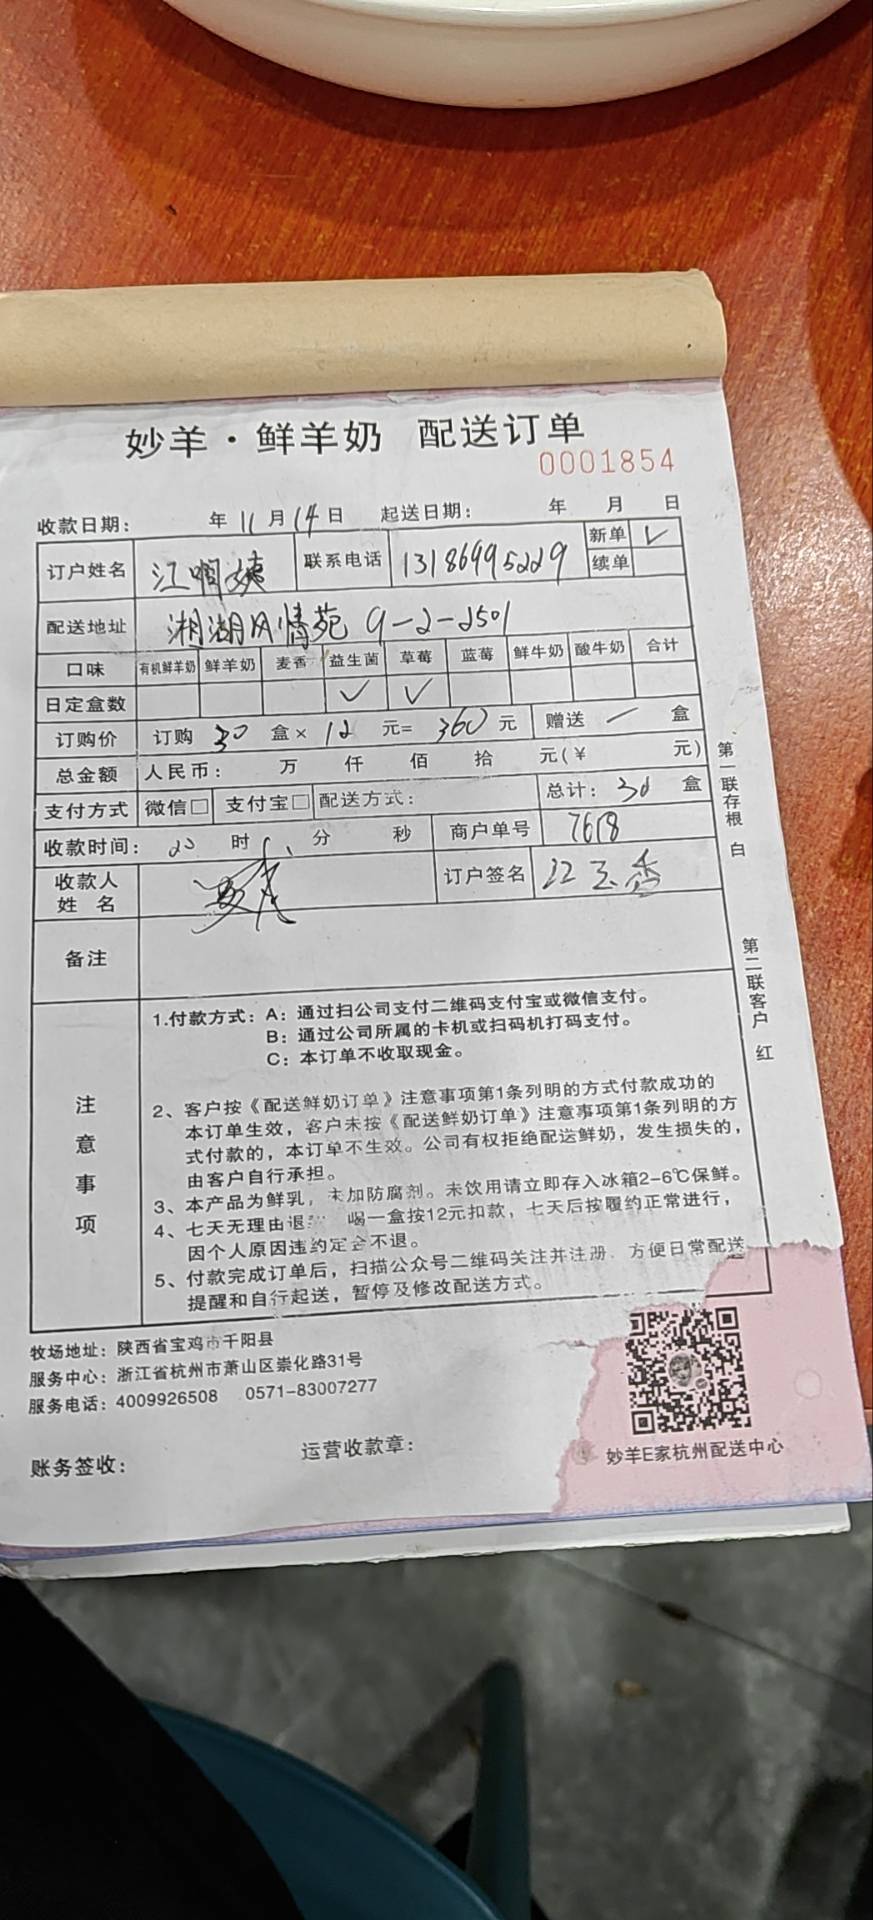 妙羊·鲜羊奶 配送订单
0001854
收款日期： 年 11 月 14 日 起送日期： 年 月 日
订户姓名 江 联系电话 13186995229 新单 ✓
续单
配送地址 湘湖风情苑 9-2-2501
口味 有机鲜羊奶 鲜羊奶 麦香 益生菌 草莓 蓝莓 鲜牛奶 酸牛奶 合计
日定盒数 ✓ ✓
订购价 订购 30 盒× 12 元= 360 元 赠送 一 盒
总金额 人民币： 万 仟 佰 拾 元(¥ 元)
支付方式 微信□ 支付宝□ 配送方式： 总计： 30 盒
收款时间： 20 时 分 秒 商户单号 7618
收款人
姓 名
订户签名 江玉香
备注
注意事项
1.付款方式：A：通过扫公司支付二维码支付宝或微信支付。
B：通过公司所属的卡机或扫码机打码支付。
C：本订单不收取现金。
2、客户按《配送鲜奶订单》注意事项第1条列明的方式付款成功的
本订单生效，客户未按《配送鲜奶订单》注意事项第1条列明的方
式付款的，本订单不生效。公司有权拒绝配送鲜奶，发生损失的，
由客户自行承担。
3、本产品为鲜乳，未加防腐剂。未饮用请立即存入冰箱2-6℃保鲜。
4、七天无理由退 喝一盒按12元扣款，七天后按履约正常进行，
因个人原因违约定金不退。
5、付款完成订单后，扫描公众号二维码关注并注册，方便日常配送
提醒和自行起送，暂停及修改配送方式。
第一联存根 白
第二联客户 红
牧场地址：陕西省宝鸡市千阳县
服务中心：浙江省杭州市萧山区崇化路31号
服务电话：4009926508 0571-83007277
账务签收： 运营收款章：
妙羊E家杭州配送中心